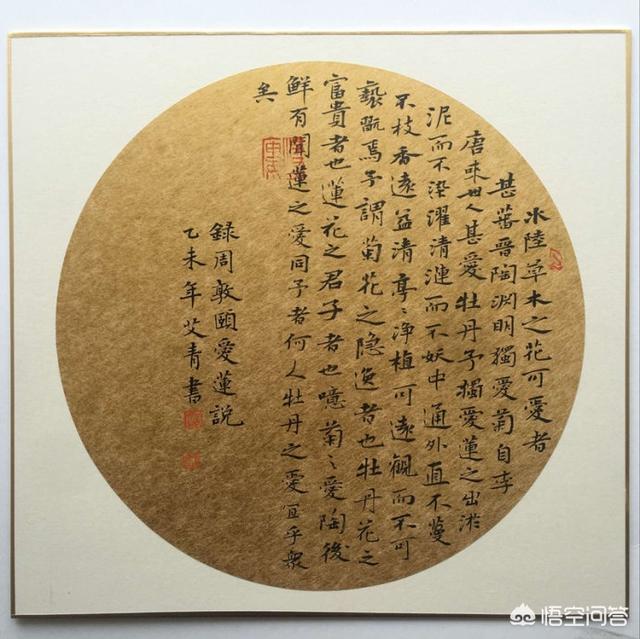 水陸草木之花可愛者
甚蕃晉陶渊明獨愛菊自李
唐來世人甚愛牡丹予獨愛蓮之出淤
泥而不染濯清漣而不妖中通外直不蔓
不枝香遠益清亭〻淨植可遠觀而不可
褻翫焉予謂菊花之隐逸者也牡丹花之
富貴者也蓮花之君子者也噫菊〻愛陶後
鮮有聞蓮之愛同予者何人牡丹之愛宜乎衆
矣
録周敦頤愛蓮説
乙未年艾青書
悟空问答